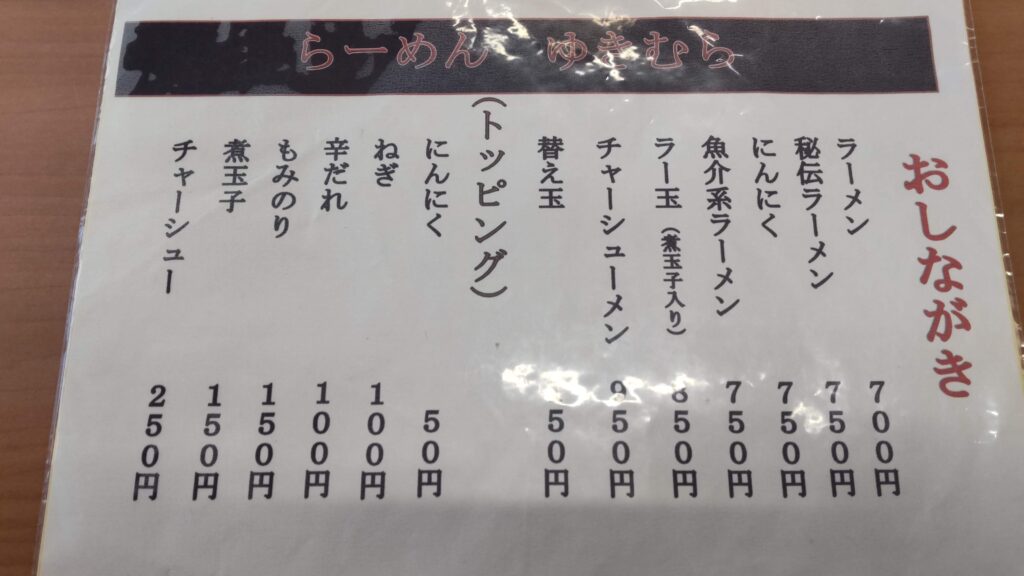 らーめん　ゆきむら
おしながき
ラーメン　７００円
秘伝ラーメン　７５０円
にんにく　７５０円
魚介系ラーメン　７５０円
ラー玉（煮玉子入り）　８５０円
チャーシューメン　９５０円
替え玉　５０円
（トッピング）
にんにく　５０円
ねぎ　１００円
辛だれ　１００円
もみのり　１５０円
煮玉子　１５０円
チャーシュー　２５０円